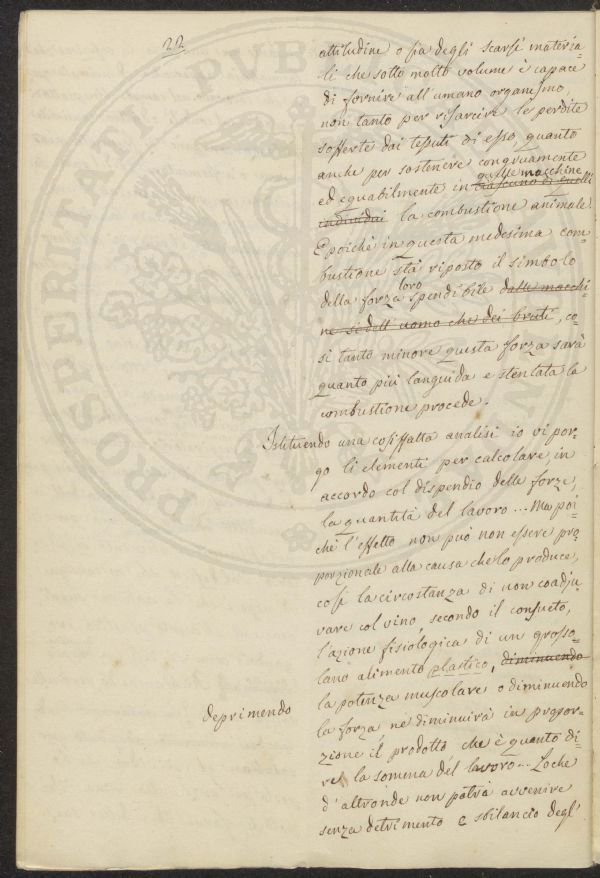 22
attitudine o sia degli scarsi materia-
li che sotto molto volume è capace
di fornire all'umano organismo,
non tanto per risarcire le perdite
sofferte dai tessuti di esso, quanto
anche per sostenere congruamente
quelle macchine
ed equabilmente in ciascuno di quelli
individui la combustione animale.
E poichè in questa medesima com-
bustione stà riposto il simbolo
loro
della forza spendibile dalle macchi-
ne sì dell'uomo che dei bruti, co-
sì tanto minore questa forza sarà
quanto più languida e stentata la
combustione procede.
Istituendo una cosiffatta analisi io vi por-
go li elementi per calcolare, in
accordo col dispendio delle forze,
la quantità del lavoro... Ma poi-
chè l'effetto non può non essere pro-
porzionale alla causa che lo produce,
così la circostanza di non coadju-
vare col vino secondo il consueto,
l'azione fisiologica di un grosso-
lano alimento plastico, diminuendo
la potenza muscolare o diminuendo
deprimendo
la forza ne diminuirà in propor-
zione il prodotto che è quanto di-
re la somma del lavoro... Loche
d'altronde non potrà avvenire
senza detrimento e sbilancio degl'
PROSPERITATI PUBL